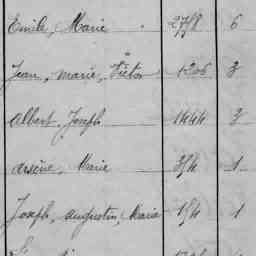 Emile, Marie 2778 6
Jean, Marie, Victor 1206 3
Albert, Joseph 1444 3
Arsène, Marie 1
Joseph, Augustin, Marie 1